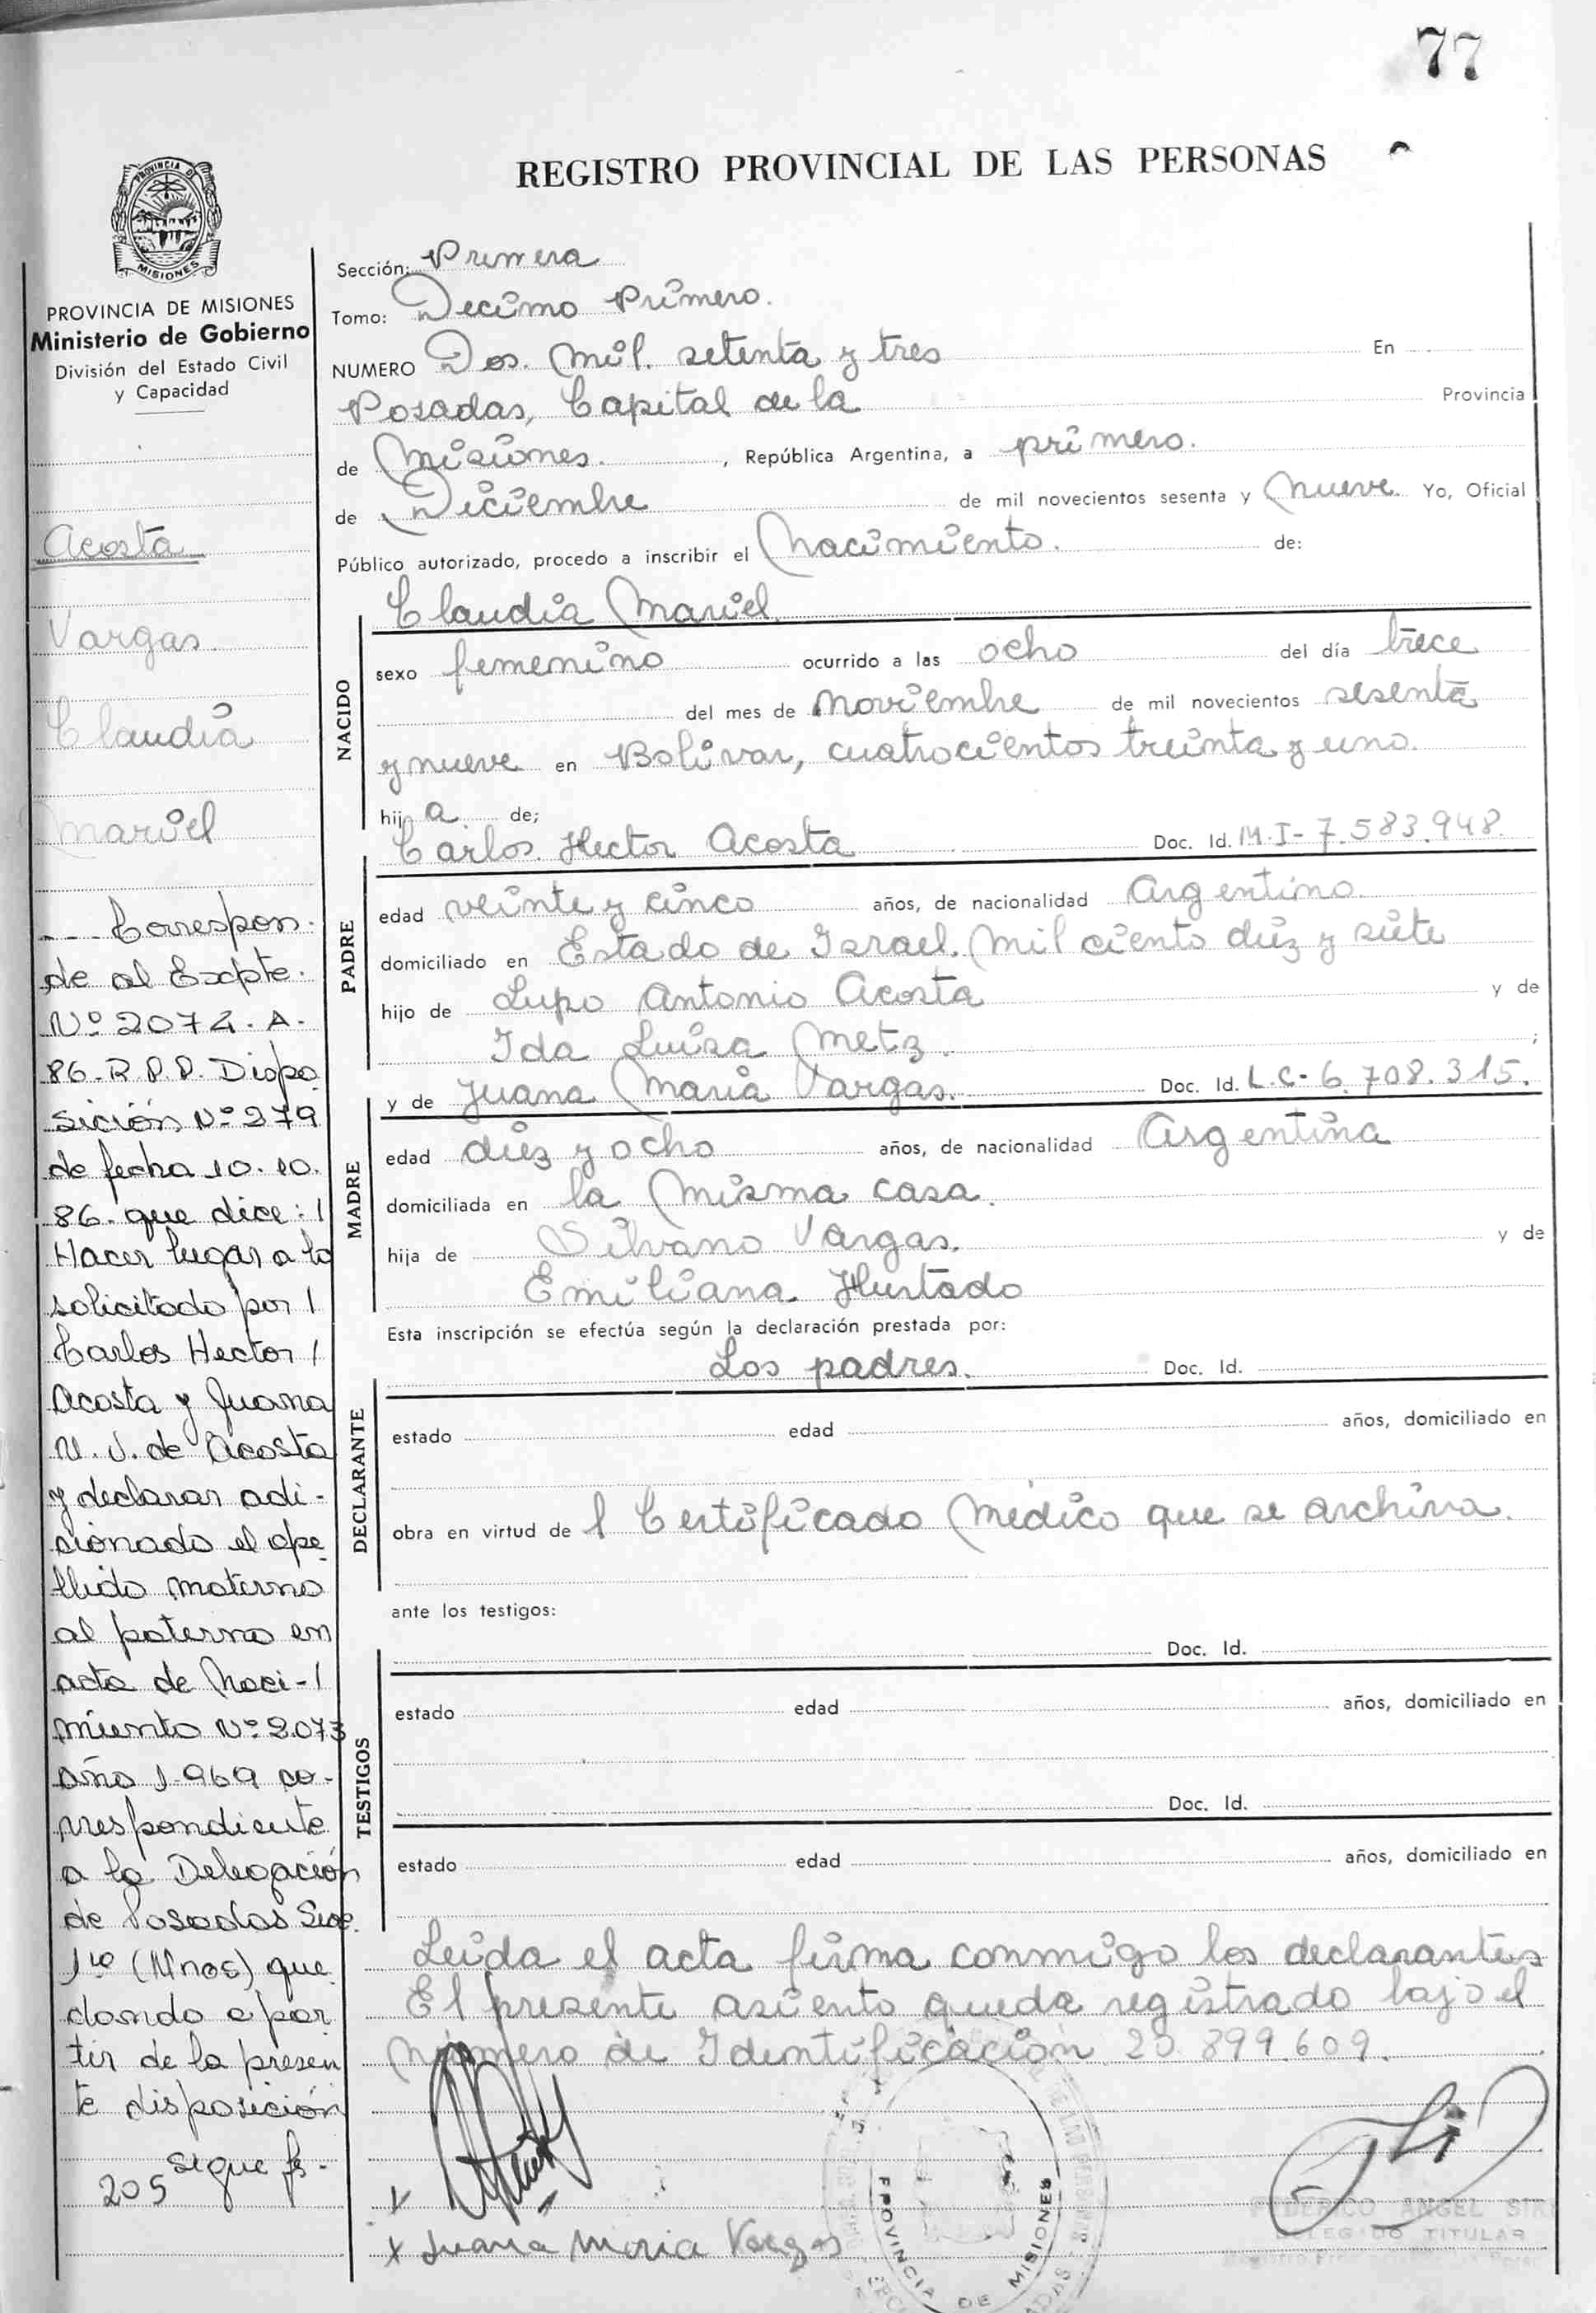 77
REGISTRO PROVINCIAL DE LAS PERSONAS
PROVINCIA DE
MISIONES
PROVINCIA DE MISIONES
Ministerio de Gobierno
División del Estado Civil
y Capacidad
Acosta
Vargas
Claudia
Mariel
--- Correspon-
de al Expte.
Nº 2074. A.
86- R.P.P. Dispo
sición Nº 279
de fecha 10.10.
86. que dice: /
Hacer lugar a lo
solicitado por /
Carlos Hector /
Acosta y Juana
V. de Acosta
y declarar adi-
cionado el ape-
llido materno
al paterno en
acta de Naci-/
miento Nº 2.073
año 1.969 co-
rrespondiente
a la Delegación
de Posadas Secc.
1ra (Mnes) que
dando a par
tir de la presen
te disposición
sigue fs-
205
Sección: Primera
Tomo: Decimo Primero.
NUMERO Dos. Mil. setenta y tres En
Posadas, Capital de la Provincia
de Misiones. , República Argentina, a primero.
de Diciembre de mil novecientos sesenta y Nueve. Yo, Oficial
Público autorizado, procedo a inscribir el Nacimiento. de:
Claudia Mariel
NACIDO
sexo femenino ocurrido a las ocho del día trece
del mes de Noviembre de mil novecientos sesenta
y nueve en Bolivar, cuatrocientos treinta y uno.
hij a de;
Carlos Hector Acosta Doc. Id. M.I-7.583.948.
PADRE
edad veinte y cinco años, de nacionalidad Argentino.
domiciliado en Estado de Israel. Mil ciento diez y siete
hijo de Lupo Antonio Acosta y de
Ida Luisa Metz. ;
y de Juana Maria Vargas. Doc. Id. L.C-6.708.315.
MADRE
edad diez y ocho años, de nacionalidad Argentina
domiciliada en la misma casa.
hija de Silvano Vargas. y de
Emiliana Hurtado
Esta inscripción se efectúa según la declaración prestada por:
Los padres. Doc. Id.
DECLARANTE
estado edad años, domiciliado en
obra en virtud de l Certificado Medico que se archiva.
ante los testigos:
Doc. Id.
TESTIGOS
estado edad años, domiciliado en
Doc. Id.
estado edad años, domiciliado en
Leida el acta firma conmigo los declarantes
El presente asiento queda registrado bajo el
número de Identificación 20.899.609.
x Juana Maria Vargas
PROVINCIA DE MISIONES
ANGEL
TITULAR